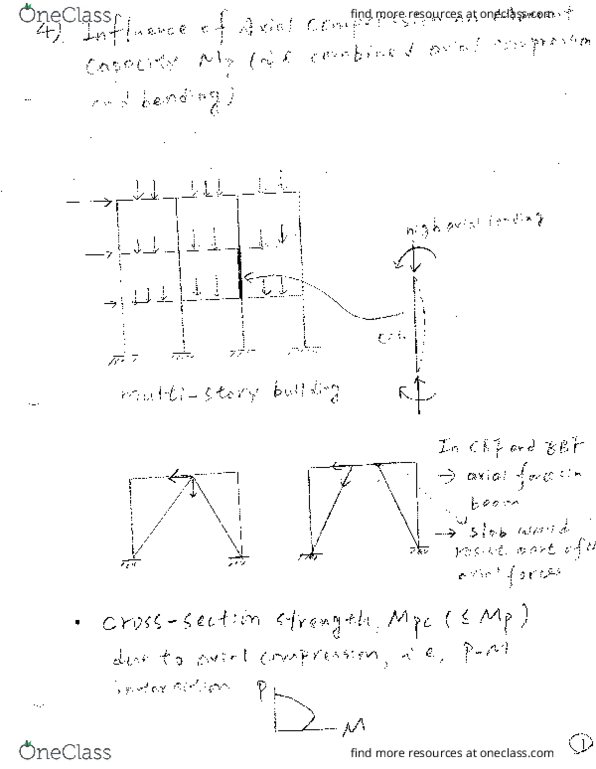 OneClass
find more resources at oneclass.com
4) Influence of Axial
Capacity Mp (i.e. combined axial compression
and bending)
high axial loading
multi-story building
In CBF and EBF
→ axial force in
beam
→ slab would
resist part of
axial forces
• Cross-section strength, Mpc (≤ Mp)
due to axial compression, i.e., P-M
interaction
P
M
1
OneClass
find more resources at oneclass.com